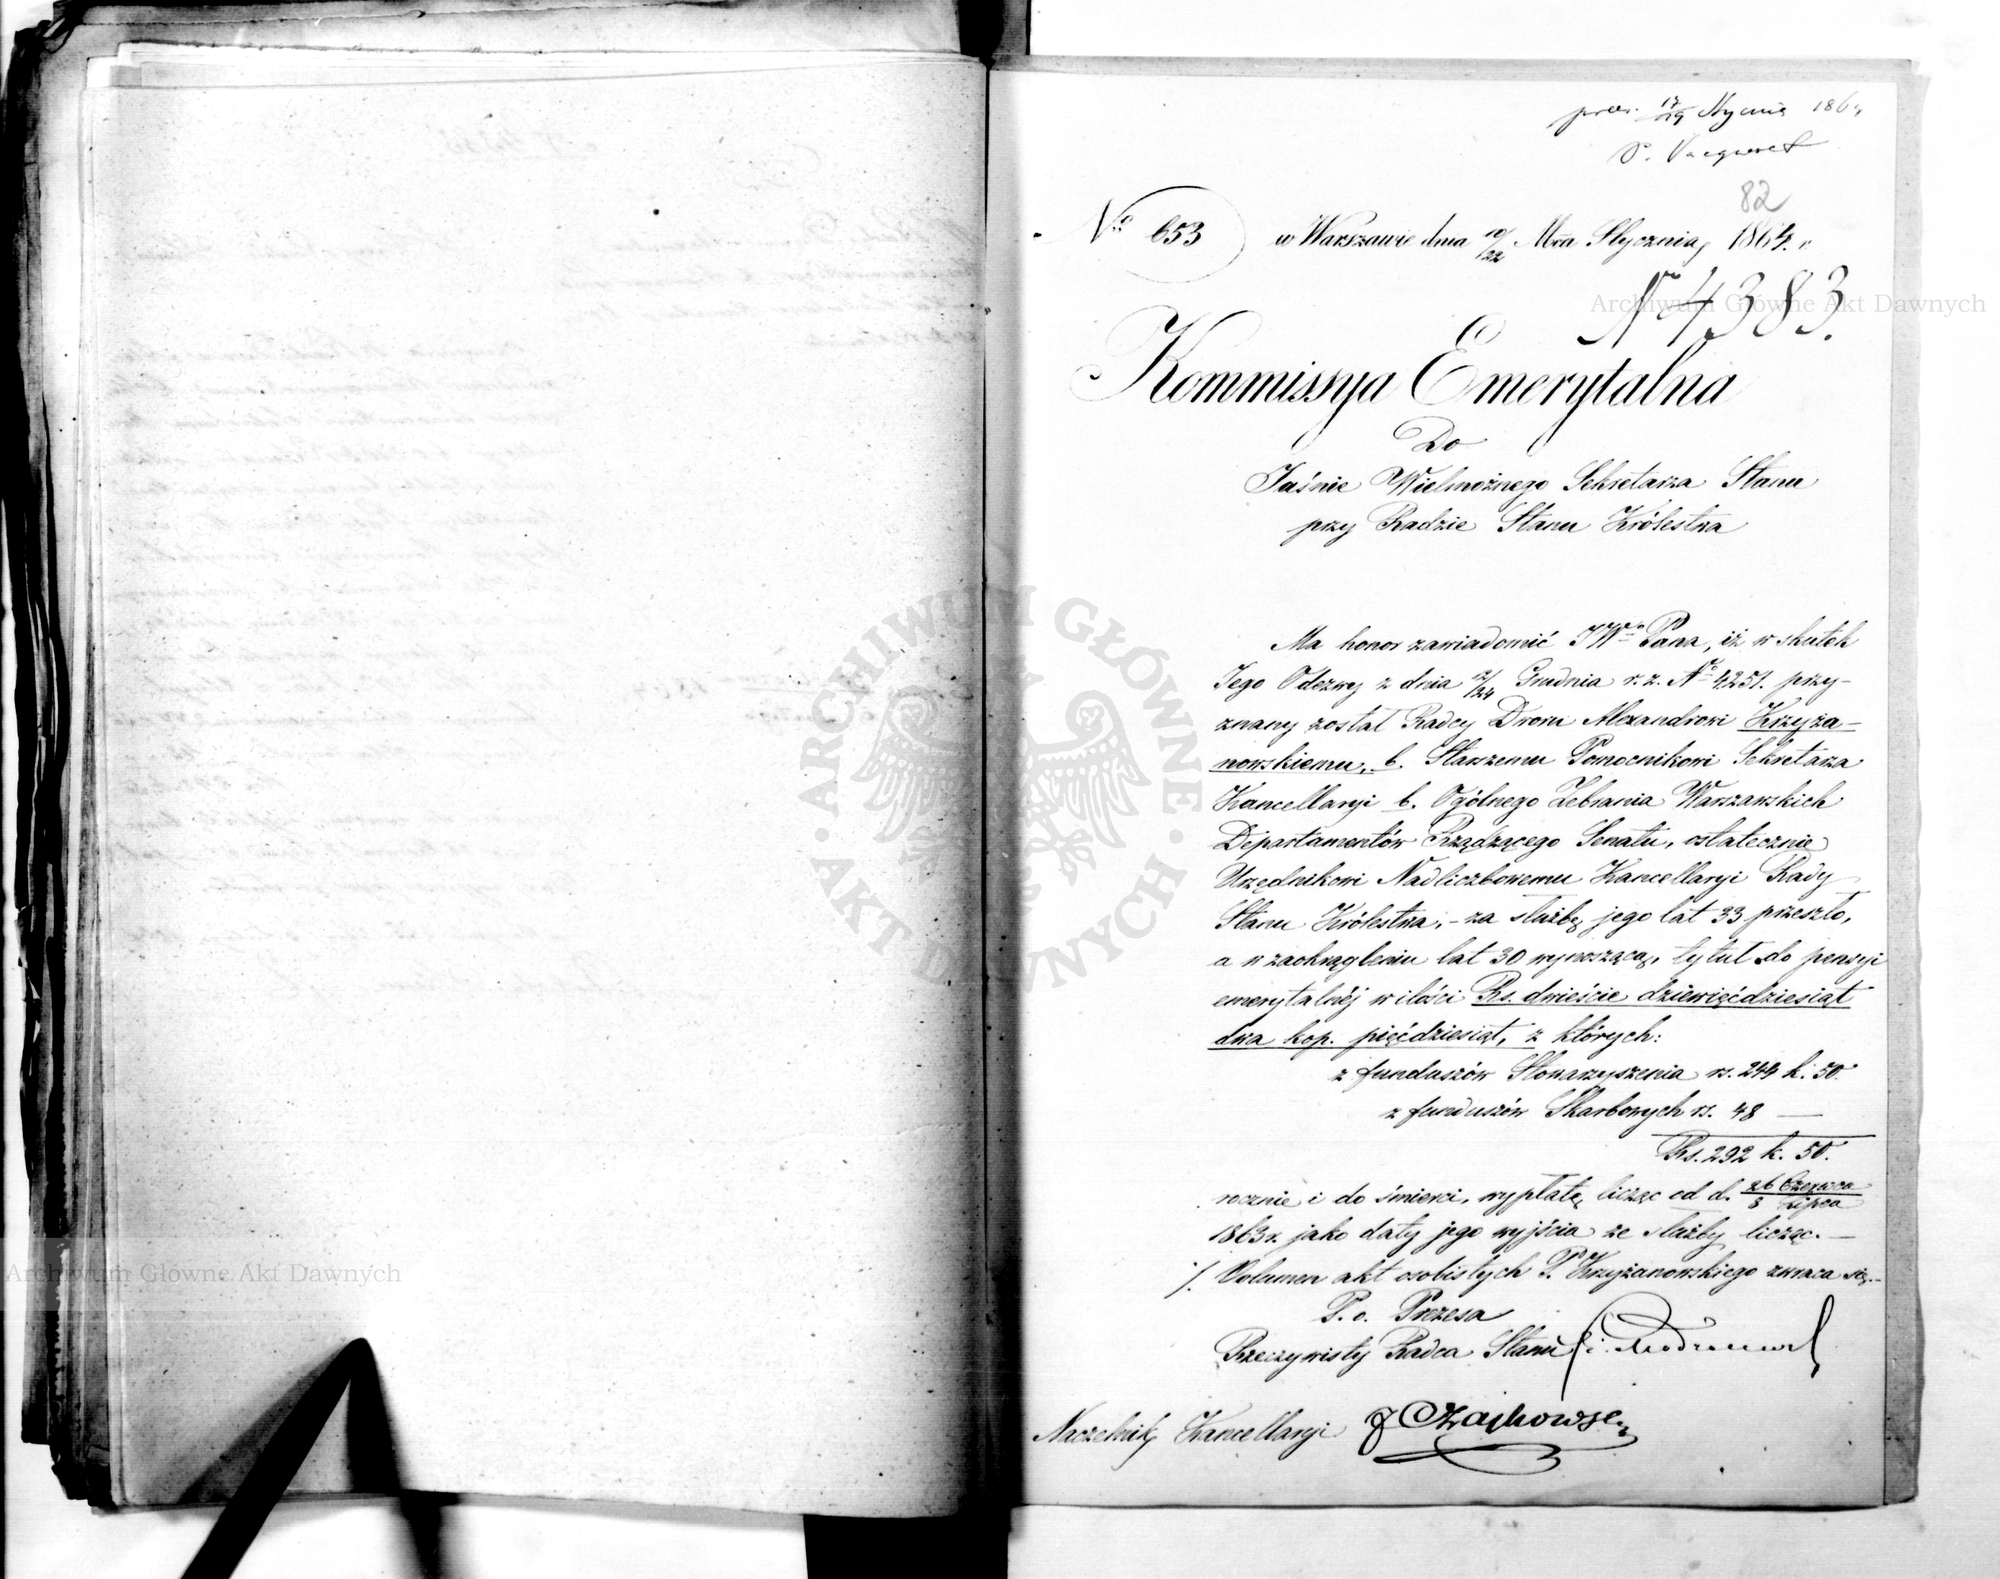 17/29 Stycznia 1864
82
No 653 w Warszawie dnia 10/22 Mca Stycznia 1864. r.
No 4383.
Archiwum Główne Akt Dawnych
Kommissya Emerytalna
Do
Jaśnie Wielmożnego Sekretarza Stanu
przy Radzie Stanu Królestwa
Ma honor zawiadomić JWo Pana, iż w skutek
Jego Odezwy z dnia 12/24 Grudnia r. z. No 4251. przy-
znany został Radcy Dworu Alexandrowi Krzyża-
nowskiemu, b. Starszemu Pomocnikowi Sekretarza
Kancellaryi b. Ogólnego Zebrania Warszawskich
Departamentów Rządzącego Senatu, ostatecznie
Urzędnikowi Nadliczbowemu Kancellaryi Rady
Stanu Królestwa, - za służbę jego lat 33 przeszło,
a w zaokrągleniu lat 30 wynoszącą, tytuł do pensyi
emerytalnéj w ilości Rs. dwieście dziewięćdziesiąt
dwa kop. pięćdziesiąt, z których:
z funduszów Stowarzyszenia rs. 244 k. 50.
z funduszów Skarbowych rs. 48 —
Rs. 292 k. 50.
rocznie i do śmierci, wypłatę licząc od d. 26 Czerwca/8 Lipca
1863 r. jako daty jego wyjścia ze służby licząc. —
Archiwum Główne Akt Dawnych
·/. Volumen akt osobistych P. Krzyżanowskiego zwraca się. -
P. o. Prezesa
Rzeczywisty Radca Stanu
Naczelnik Kancellaryi J Czajkowski
ARCHIWUM GŁÓWNE · AKT DAWNYCH ·